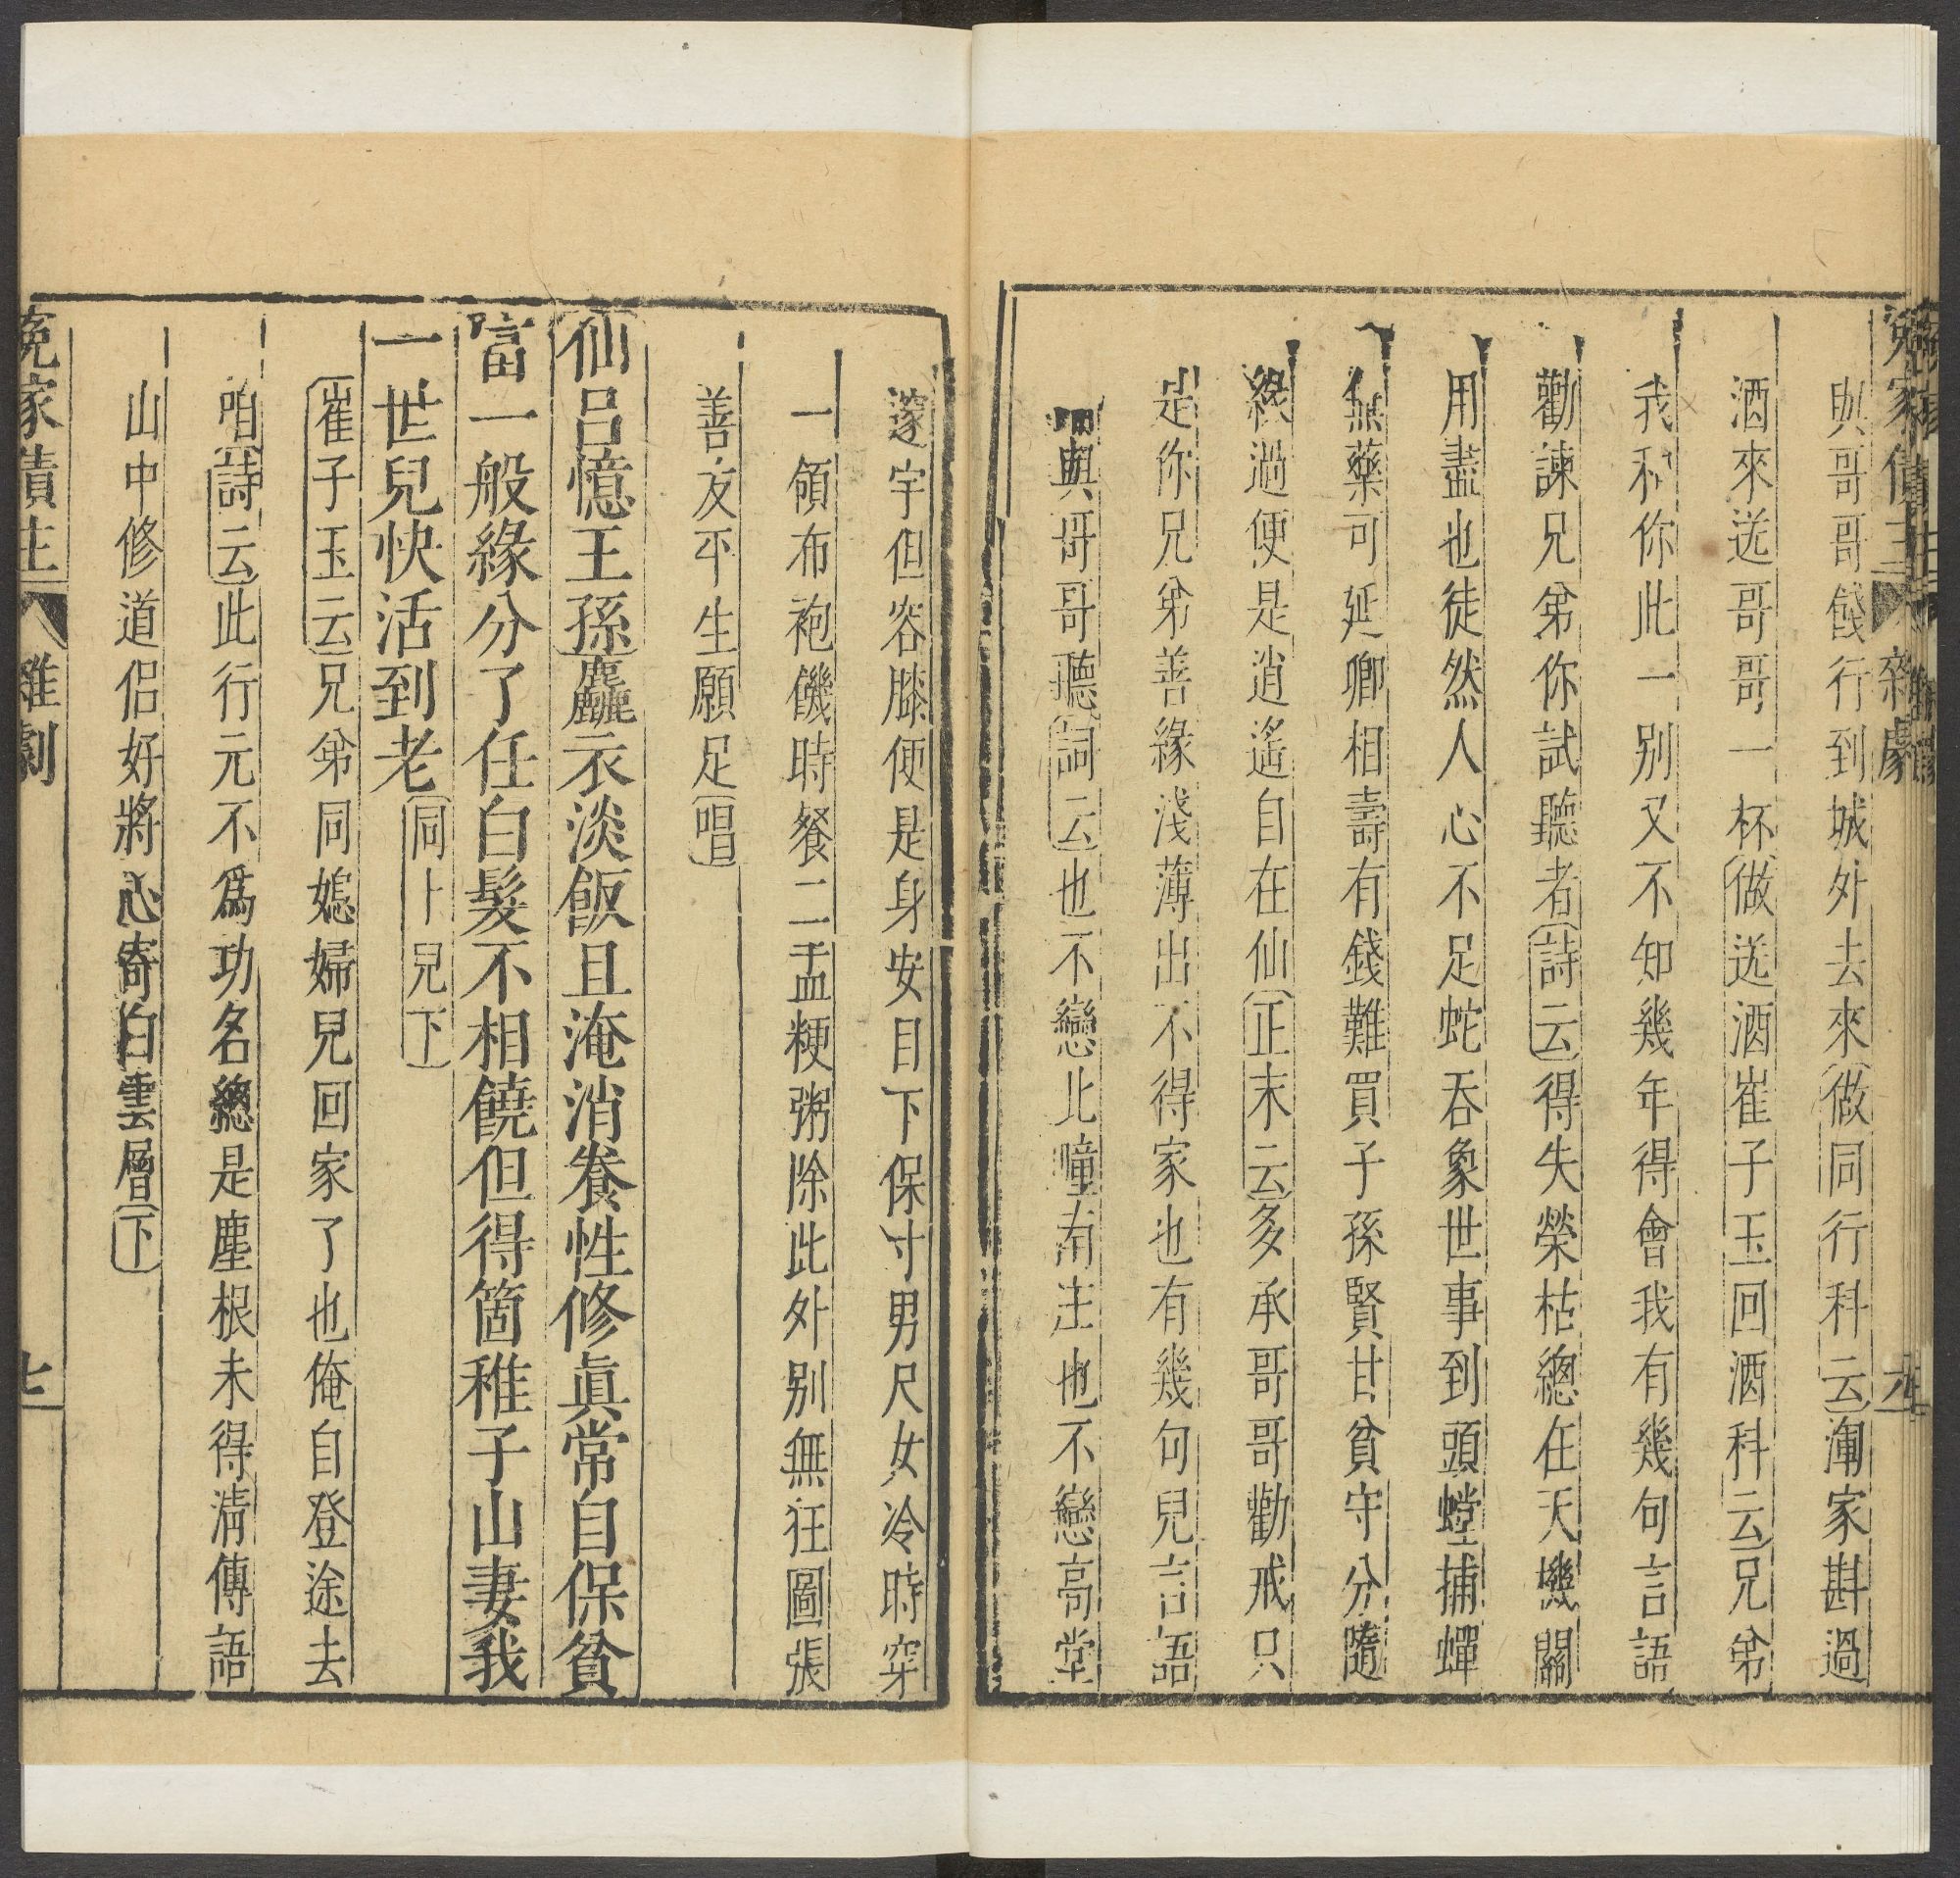 與哥哥餞行到城外去來(做同行科云)渾家斟過
酒來送哥哥一杯(做送酒崔子玉回酒科云)兄弟
我和你此一別又不知幾年得會我有幾句言語
勸諫兄弟你試聽者(詩云)得失榮枯總在天機關
用盡也徒然人心不足蛇吞象世事到頭螳捕蟬
無藥可延卿相壽有錢難買子孫賢甘貧守分隨
緣過便是逍遙自在仙(正末云)多承哥哥勸戒只
是你兄弟善緣淺薄出不得家也有幾句兒言語
與哥哥聽(詞云)也不戀北疃南庄也不戀高堂
邃宇但容膝便是身安目下保寸男尺女冷時穿
一領布袍饑時餐二盂粳粥除此外別無狂圖張
善友平生願足(唱)
仙呂憶王孫麤衣淡飯且淹消養性修眞常自保貧
富一般緣分了任白髮不相饒但得箇稚子山妻我
一世兒快活到老(同卜兒下)
(崔子玉云)兄弟同媳婦兒回家了也俺自登途去
咱(詩云)此行元不爲功名總是塵根未得淸傳語
山中修道侶好將心寄白雲層(下)
冤家債主 雜劇 七